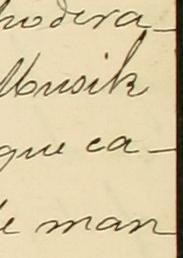 hodera-
Musik
que ca-
le man